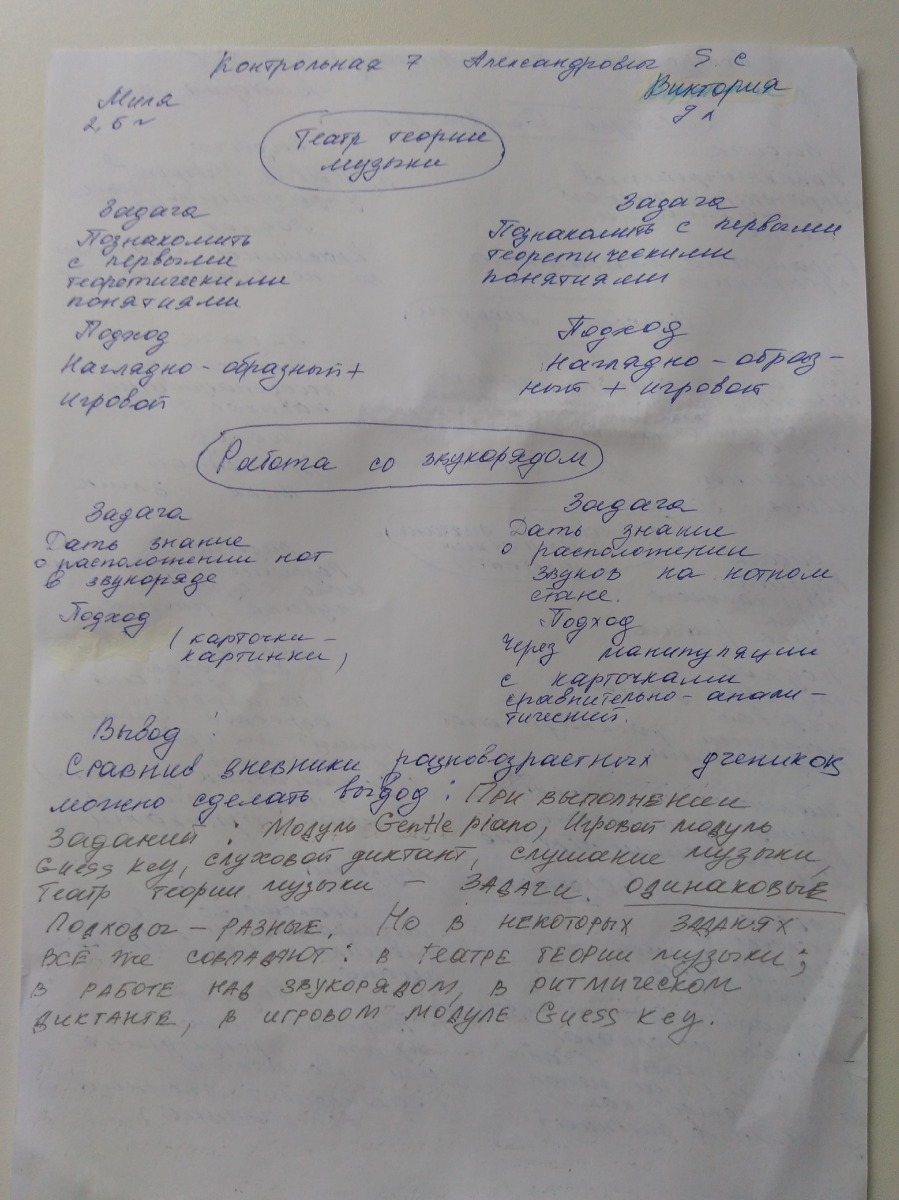 Контрольная 7 Александровы S. C
Миля
2,6 г
Виктория
9 л
Театр теории
музыки
Задача
Познакомить
с первыми
теоретическими
понятиями
Подход
Наглядно - образный +
игровой
Задача
Познакомить с первыми
теоретическими
понятиями
Подход
Наглядно - образ-
ный + игровой
Работа со звукорядом
Задача
Дать знание
о расположении нот
в звукоряде
Подход
(карточки -
картинки)
Задача
Дать знание
о расположении
звуков на нотном
стане.
Подход
Через манипуляции
с карточками
сравнительно - анали -
тический.
Вывод :
Сравнив дневники разновозрастных учеников
можно сделать вывод : При выполнении
заданий : Модуль Gentle piano, Игровой модуль
Guess key, слуховой диктант, слушание музыки,
Театр теории музыки - задачи одинаковые
Подходы - разные. Но в некоторых заданях
всё же совпадают : в театре теории музыки;
в работе над звукорядом, в ритмическом
диктанте, в игровом модуле Guess key.